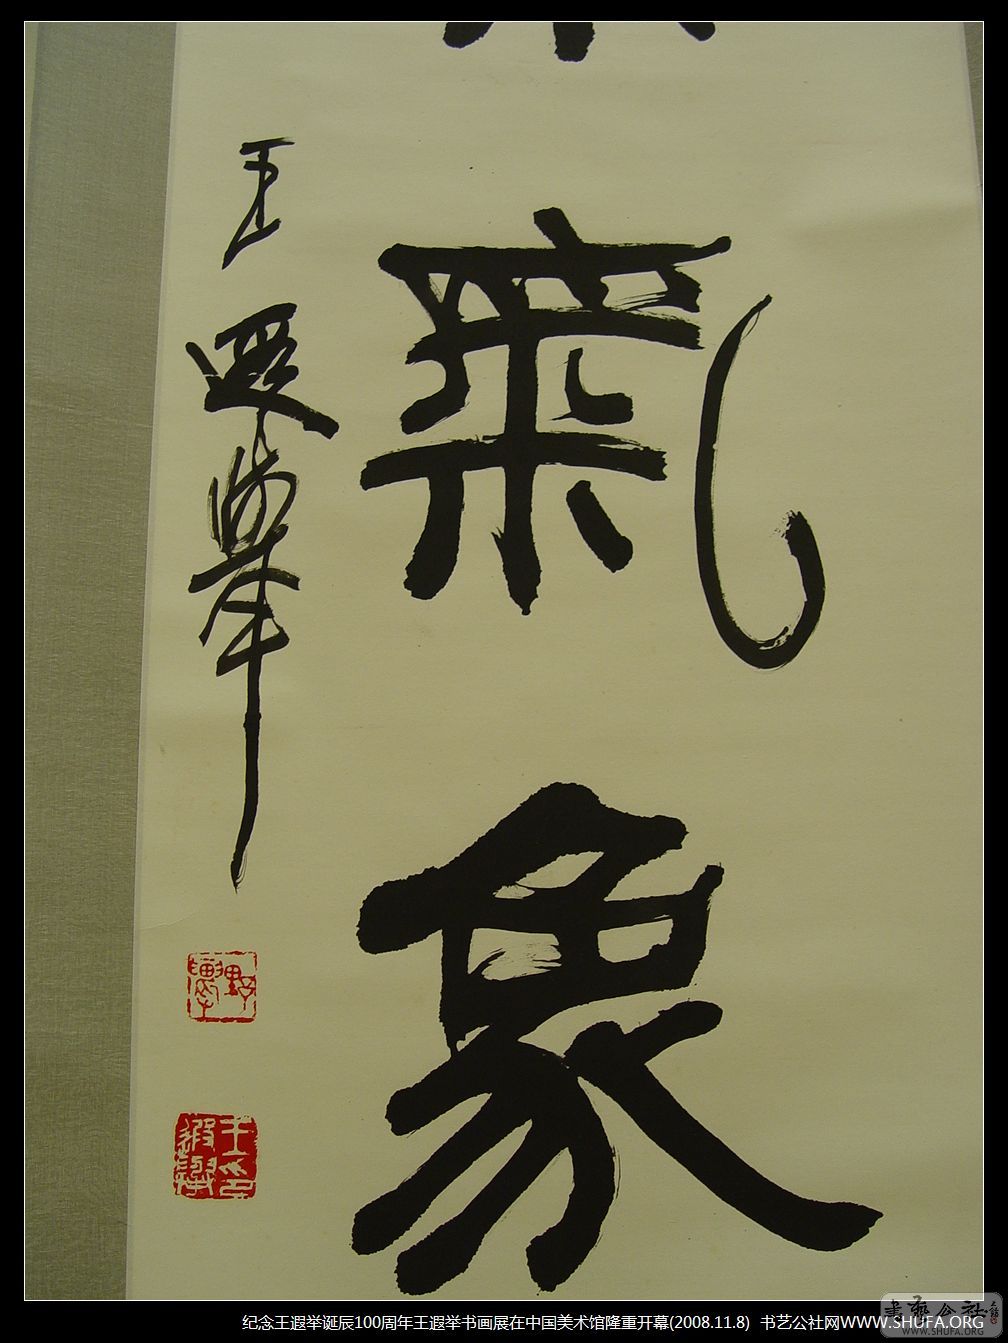 氣象
王遐舉
王遐舉印
纪念王遐举诞辰100周年王遐举书画展在中国美术馆隆重开幕(2008.11.8) 书艺公社网WWW.SHUFA.ORG
书艺公社
WWW.SHUFA.ORG